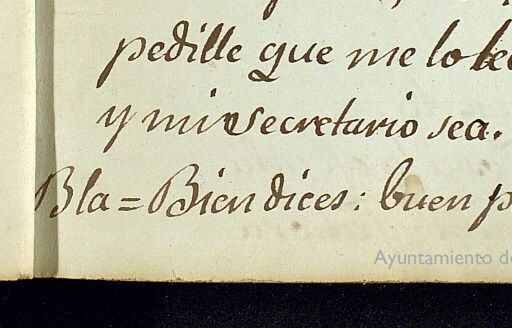 pedille que me lo lee
y mi Secretario sea.
Bla = Bien dices: buen p
Ayuntamiento de